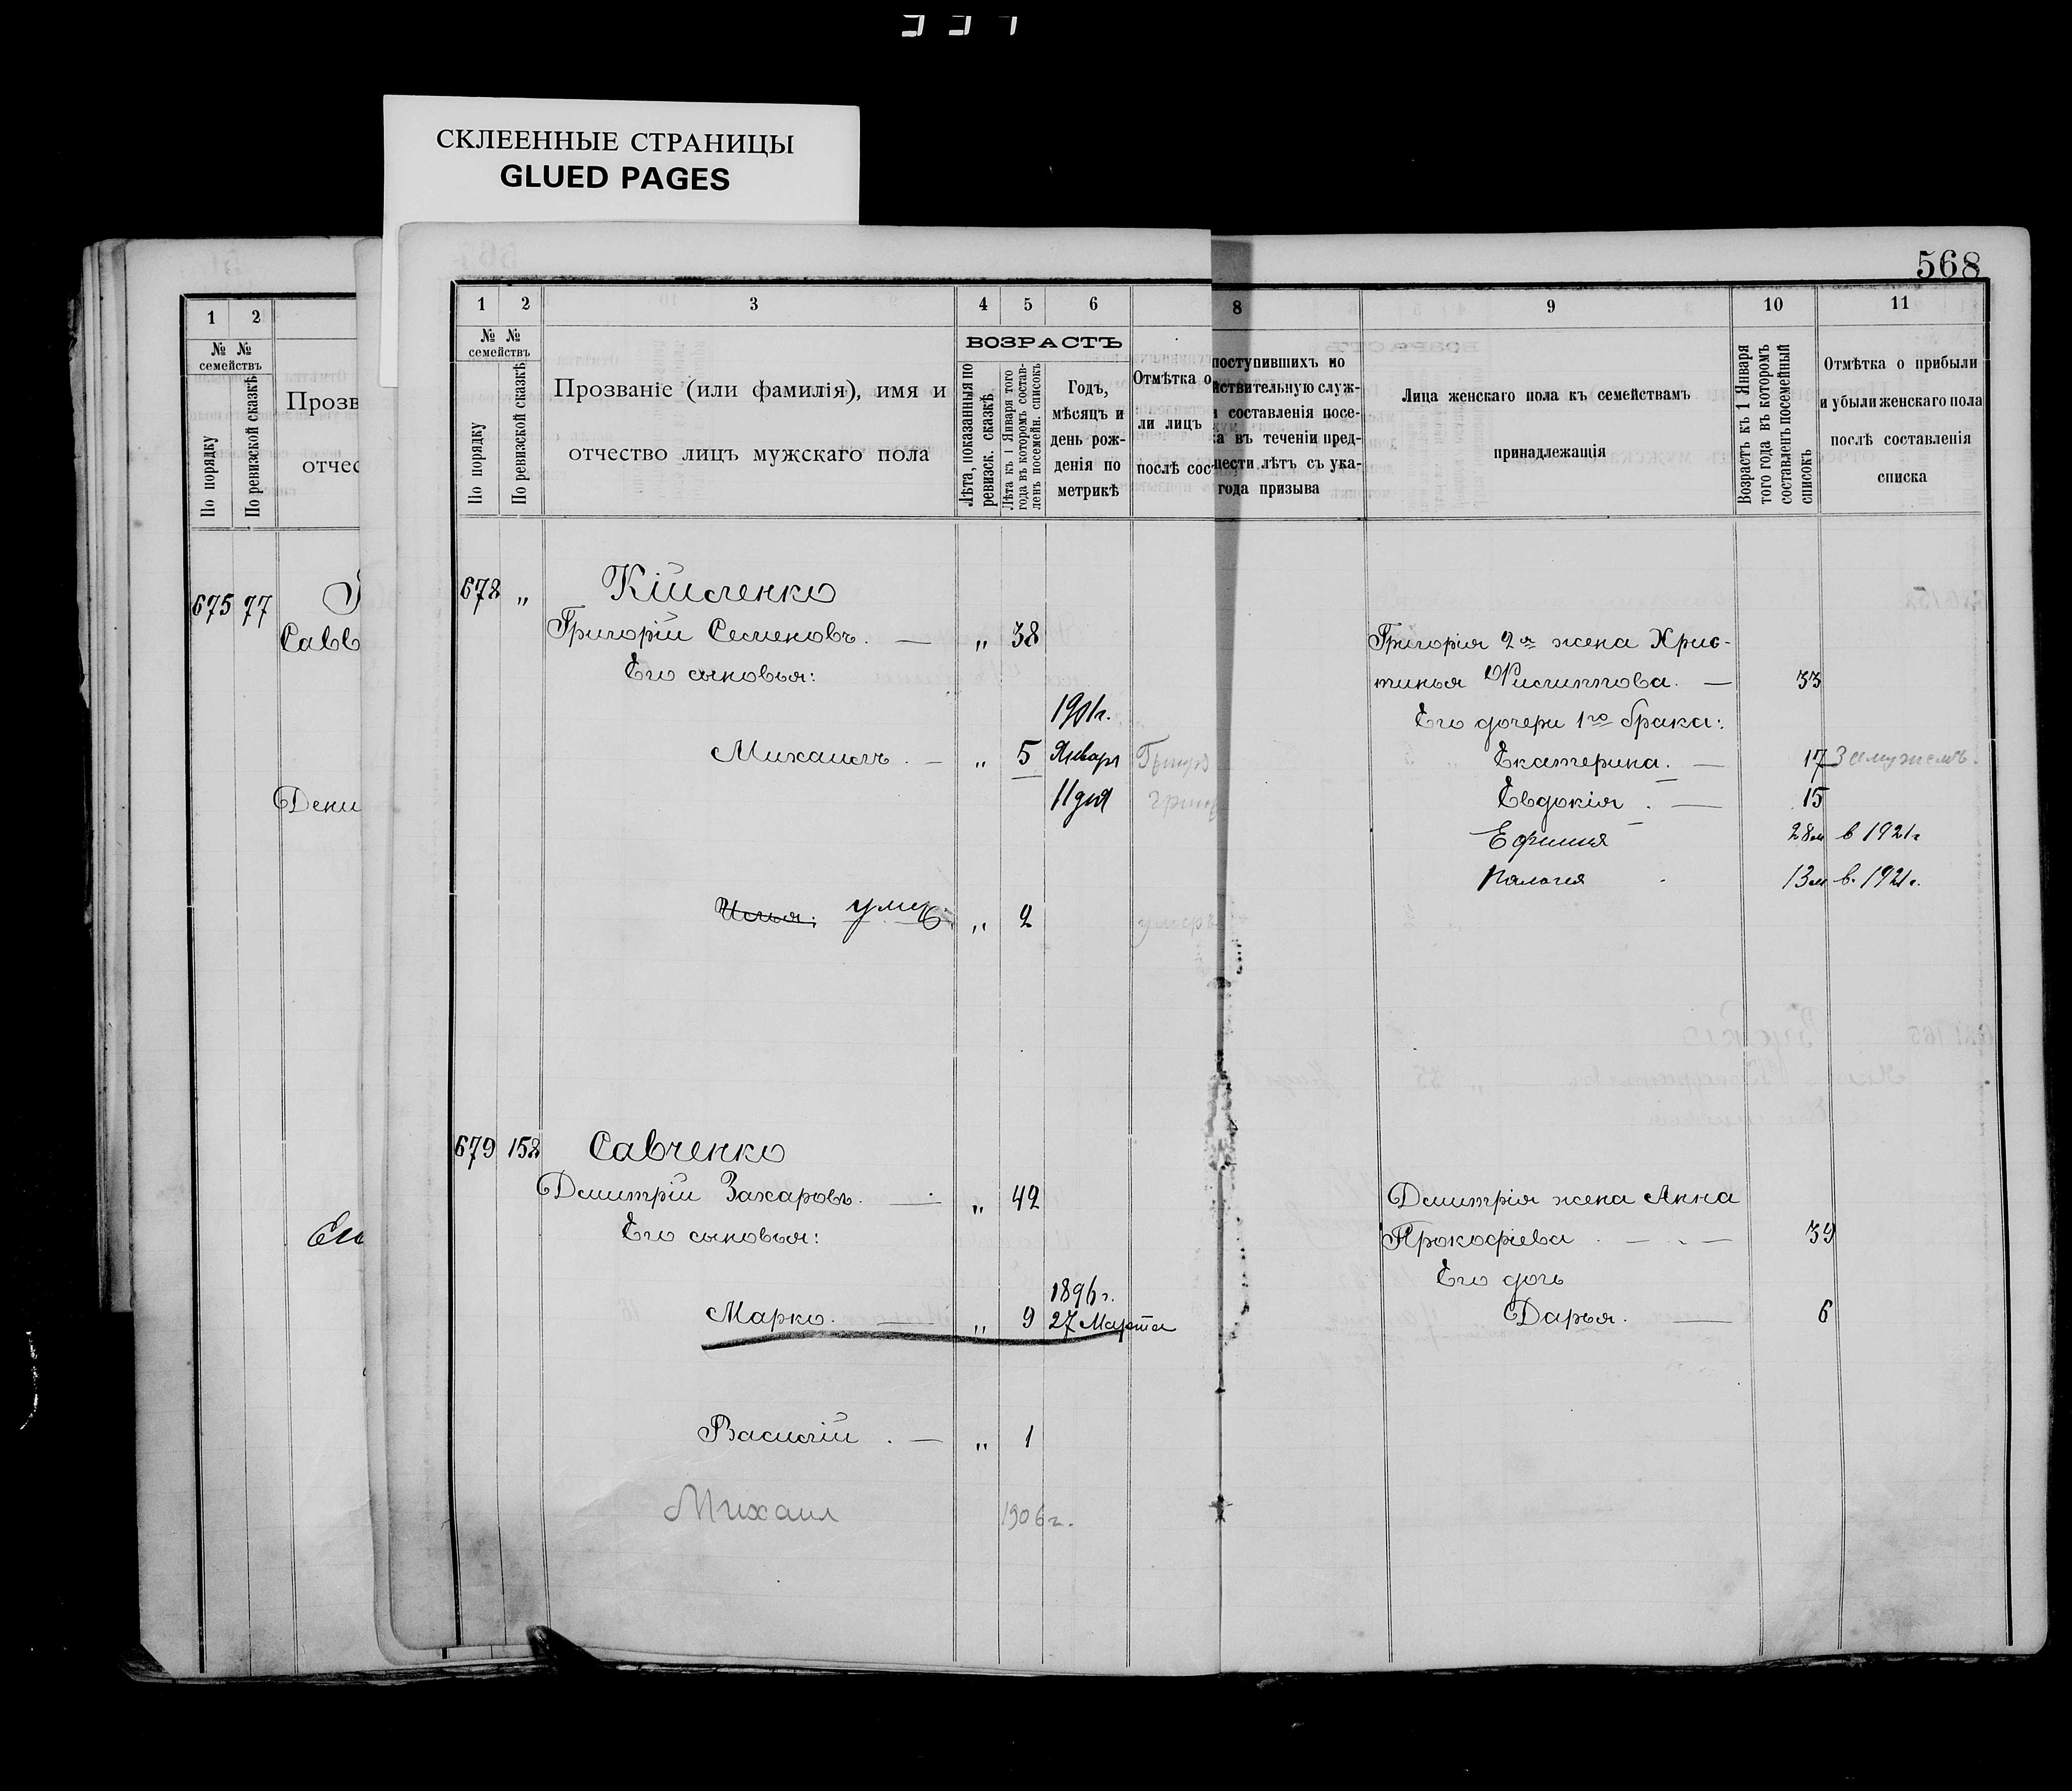 СКЛЕЕННЫЕ СТРАНИЦЫ
GLUED PAGES
568
1 2
№ №
семействъ
По порядку
По ревизской сказкѣ
Прозв
отчес
675 77
Савв
Дени
1 2 3 4 5 6
№ №
семействъ
По порядку
По ревизской сказкѣ
Прозваніе (или фамилія), имя и
отчество лицъ мужскаго пола
ВОЗРАСТЪ
Лѣта, показанныя по
ревизск. сказкѣ
Лѣта къ 1 Января того
года въ которомъ состав-
ленъ посемейн. списокъ
Годъ,
мѣсяцъ и
день рож-
денія по
метрикѣ
Отмѣтка о
ли лицъ
послѣ сос
8 9 10 11
поступившихъ но
йствительную служ-
составленія посе-
ка въ теченіи пред-
шести лѣтъ съ ука-
года призыва
Лица женскаго пола къ семействамъ
принадлежащія
Возрастъ къ 1 Января
того года въ которомъ
составленъ посемейный
списокъ
Отмѣтка о прибыли
и убыли женскаго пола
послѣ составленія
списка
678 „ Кійленко
Григорій Семеновъ. — „ 38
Его сыновья:
1901г.
Михаилъ . — „ 5 Январ
11 дня
Илья. умер „ 2
умеръ
Григорія 2я жена Хрис-
тинья Филиппова. — 33
Его дочери 1го брака:
Екатерина. — 17 Замужемъ.
Евдокія . — 15
Ефимия 28м в 1921г
Палагия 13м в. 1921г.
679 158 Савченко
Дмитрій Захаровъ. — „ 42
Его сыновья:
1896г.
Марко. — „ 9 27 Марта
Василій . — „ 1
Михаил 1906г.
Дмитрія жена Анна
Прокофіева . — . — 39
Его дочь
Дарья. — 6